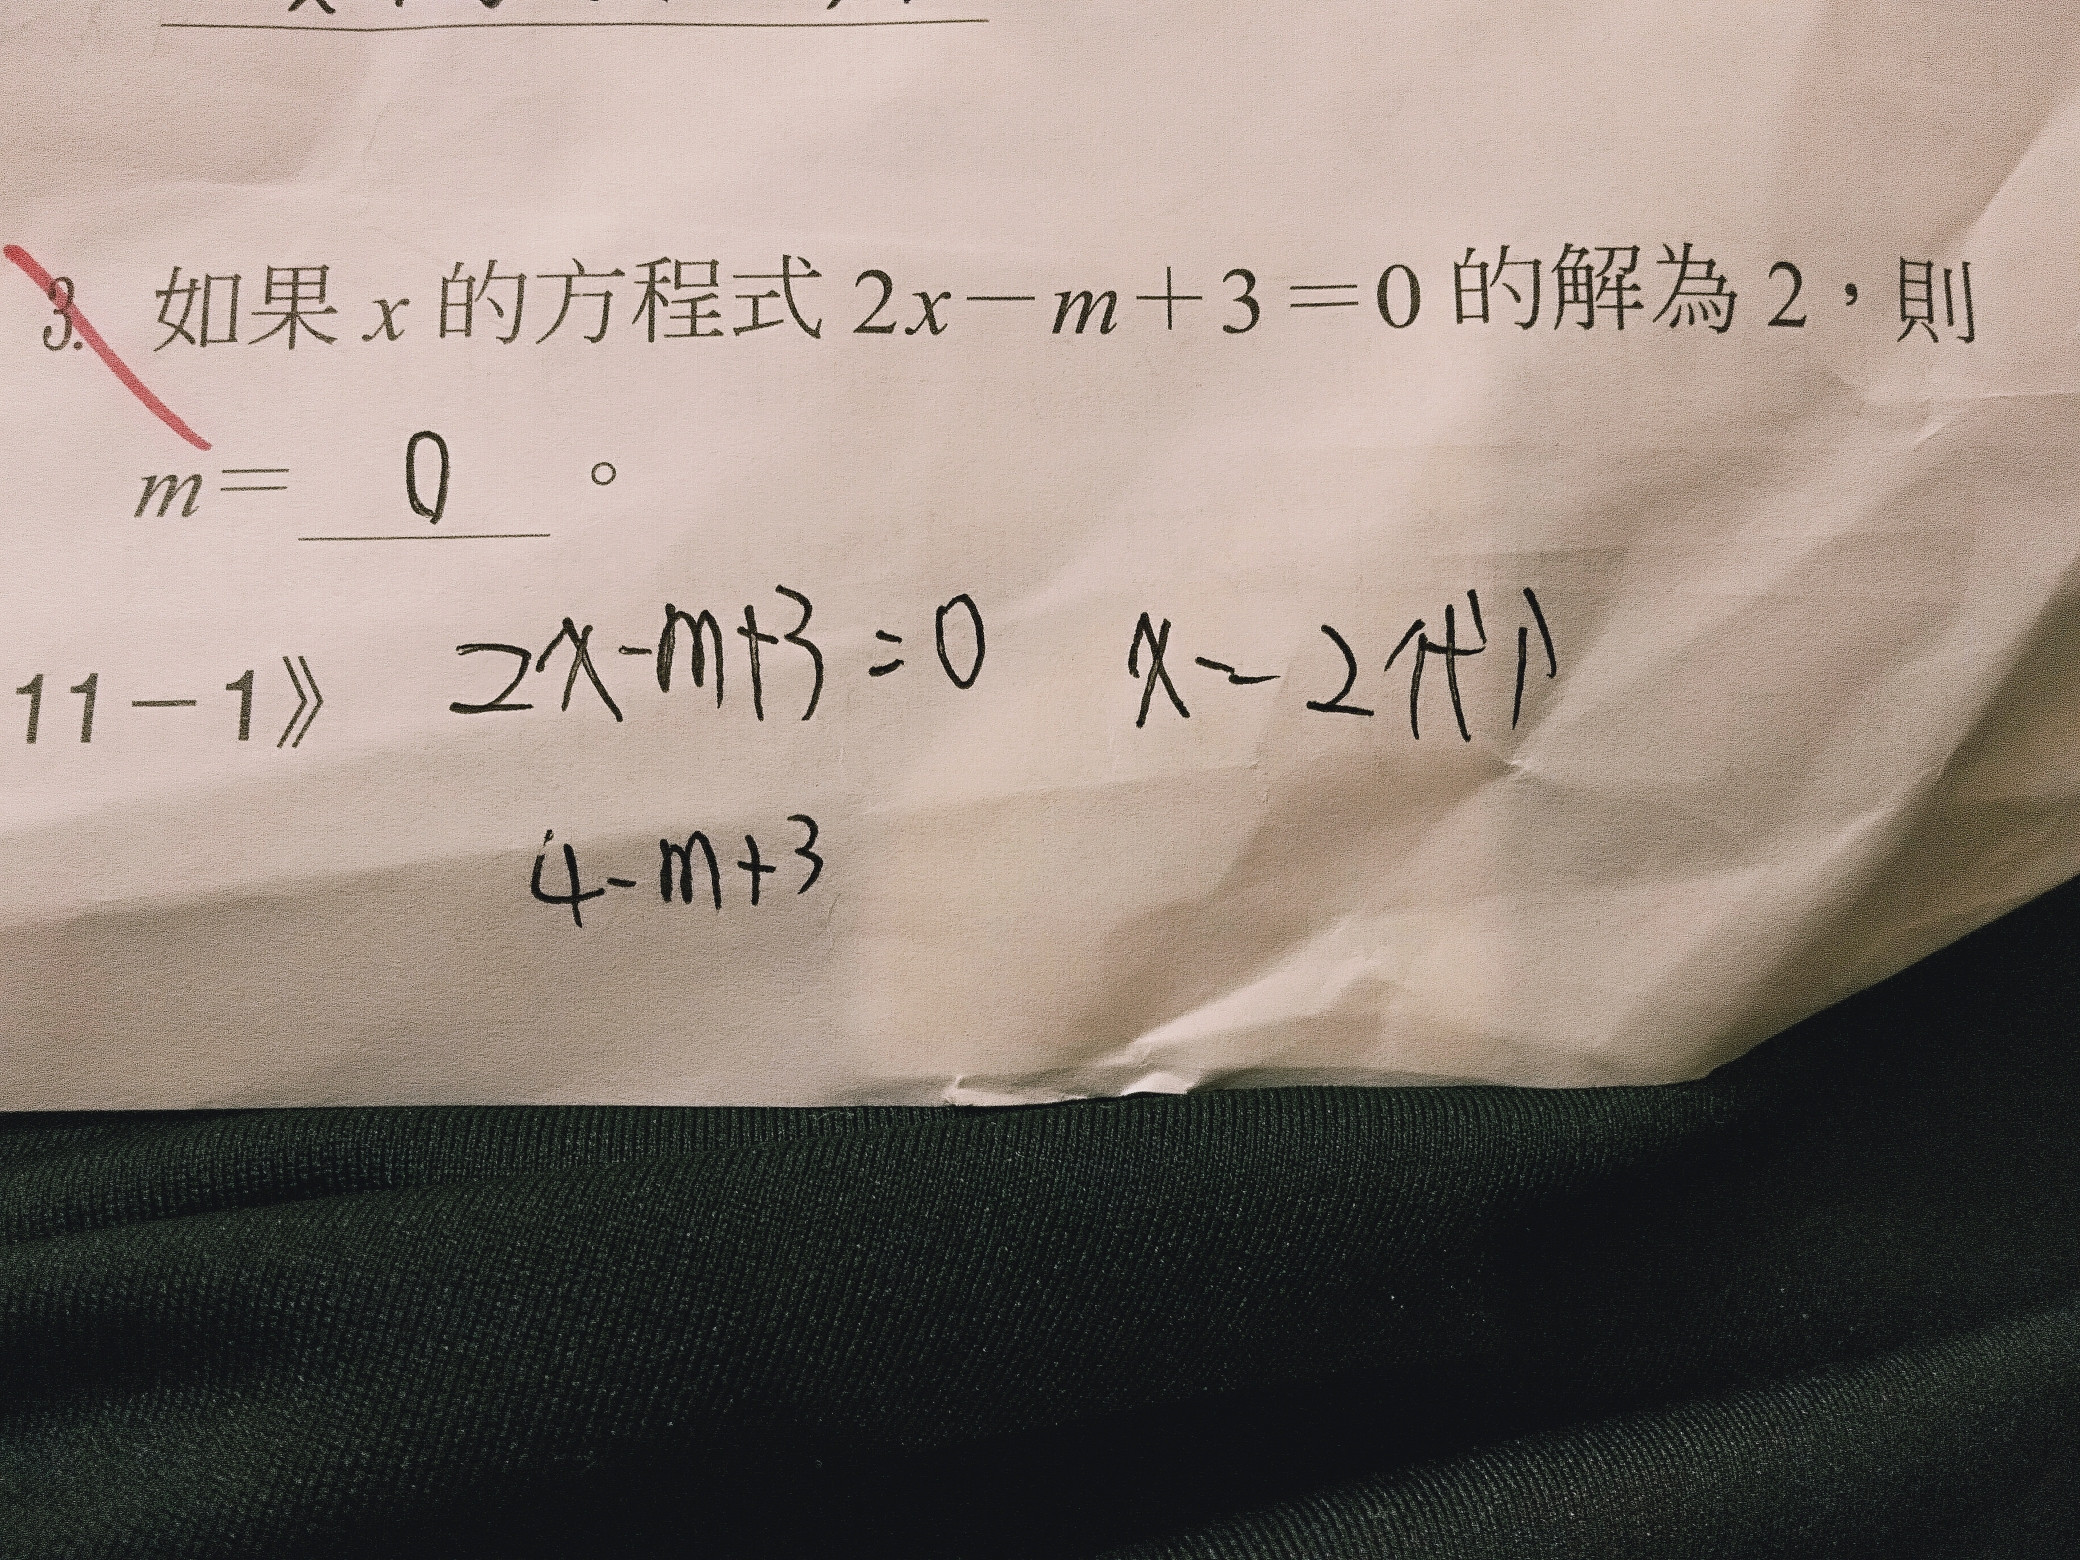 3. 如果 x 的方程式 2x－m＋3＝0 的解為 2，則
m＝ 0 。
11－1》 2x-m+3=0 x=2代入
4-m+3